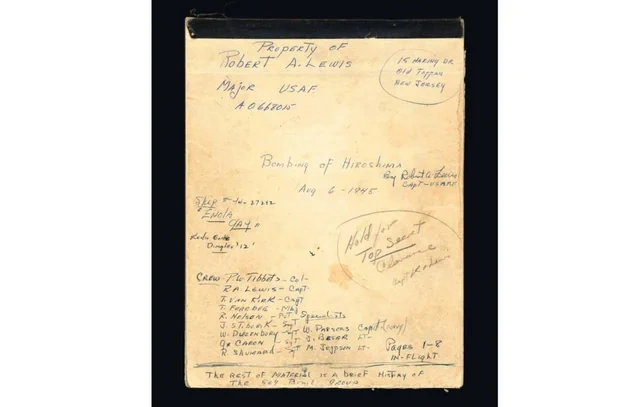 Property of
Robert A. Lewis
Major USAF
AO 668015
15 Haring Dr
Old Tappan
New Jersey
Bombing of Hiroshima
Aug 6 - 1945
By Robert A. Lewis
Capt - USAAF
Ship
"Enola
Gay"
Radio
Dimples '12'
Hold for
Top Secret
Clearance
Crew P.W. Tibbets - Col -
R.A. Lewis - Capt
T. Van Kirk - Capt
T. Ferebee - Maj
R. Nelson - Pvt
Specialists
J. Stiborik - Sgt
W. Parsons Capt (Navy)
W. Duzenbury - Sgt
Beser Lt -
Caron - Sgt
M. Jeppson Lt -
R. Shumard - Sgt
Pages 1-8
In-Flight
The rest of material is a brief history of
the 509 Group